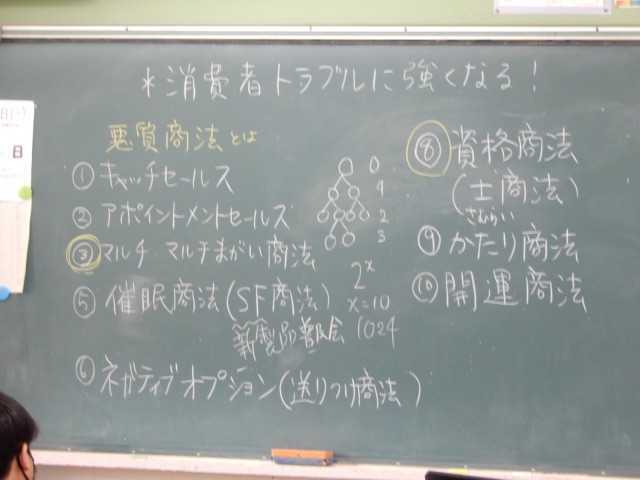 *消費者トラブルに強くなる!
悪質商法とは
①キャッチセールス
②アポイントメントセールス
③マルチ・マルチまがい商法
⑤催眠商法(SF商法)
新製品普及会
⑥ネガティブオプション(送りつけ商法)
0
1
2
3
2ˣ
x=10
1024
⑧資格商法
(士商法)
さむらい
⑨かたり商法
⑩開運商法
日